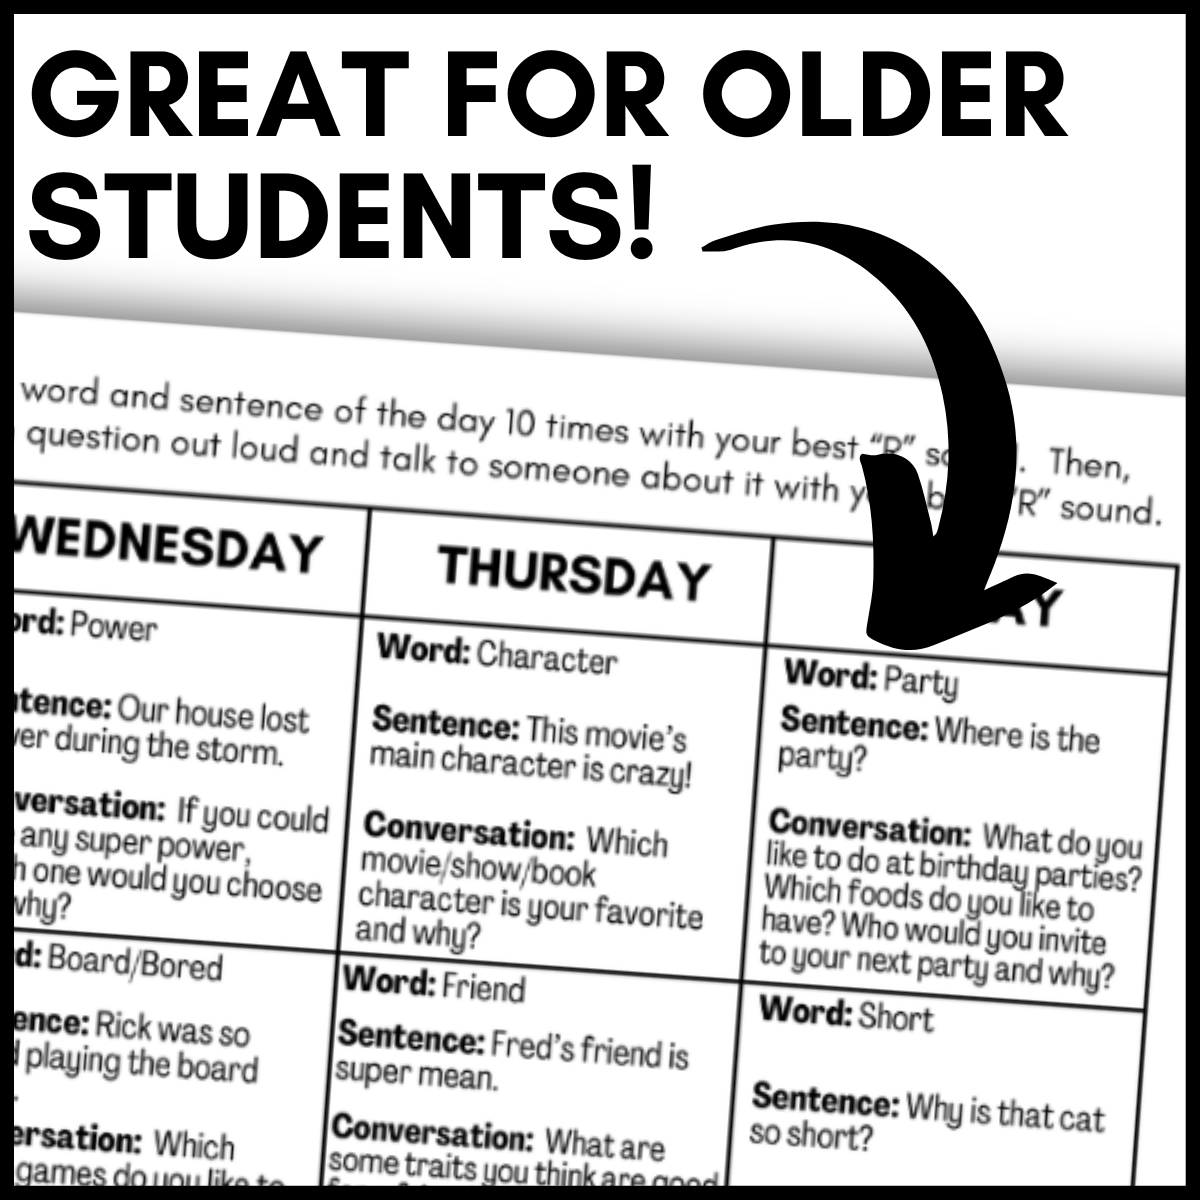 GREAT FOR OLDER
STUDENTS!
word and sentence of the day 10 times with your best “R” . Then,
question out loud and talk to someone about it with “R” sound.
WEDNESDAY
THURSDAY
Power
Our house lost
during the storm.
If you could
any super power,
one would you choose
why?
Word: Character
Sentence: This movie’s
main character is crazy!
Conversation: Which
movie/show/book
character is your favorite
and why?
Word: Party
Sentence: Where is the
party?
Conversation: What do you
like to do at birthday parties?
Which foods do you like to
have? Who would you invite
to your next party and why?
Board/Bored
Rick was so
playing the board
Which
games do you like to
Word: Friend
Sentence: Fred’s friend is
super mean.
Conversation: What are
some traits you think are good
Word: Short
Sentence: Why is that cat
so short?